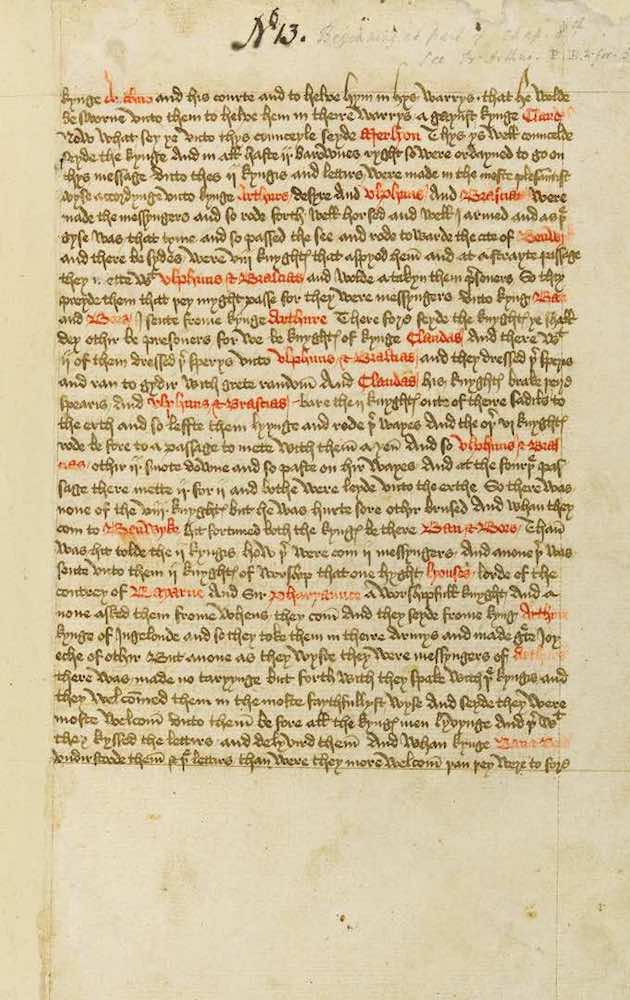 No 13. Beginning at part
See Pr. Arthur. P. B.
kynge Arthure and his courte and to helpe hym in hys warrys · that he wolde
be sworne vnto them to helpe hem in theire warrys a gaynst kynge Claud
Now what sey ye vnto thys counceyle seyde Merlyon Thys ys well councelde
seyde the kynge And in all haste ij barownes ryght so were ordayned to go on
thys message vnto thes ij kyngis and lettirs were made in the moste plesauntist
wyse accordynge vnto kynge Arthurs desyre And Vlphius And Brascias were
made the messyngers and so rode forth well horsed and well I armed and as þe
gyse was that tyme and so passed the see and rode towarde the cite of Benwi
and there be sydes were viij knyghtes that aspyed hem and at a strayte passage
they mette wt Vlphuns & Brascias and wolde a takyn them presoners So they
preyde them that þey myght passe for they were messyngers vnto kyng Ban
and Bors I sente frome kynge Arthure There fore seyde the knyghtes ye shall
dey othir be presoners for we be knyghtes of kynge Claudas And there wt
ij of them dressed þer sperys vnto Vlphuns & Brascias and they dressed þer sperys
and ran to gydir with grete raundom And Claudas his knyghtes brake þeyre
spearis And Vlphuns & Brastias bare the ij knyghtes oute of theire sadils to
the erth and so leffte them lyynge and rode þer wayes And the oþer vi knyghtes
rode be fore to a passage to mete with them a yen And so Vlphuns & Bras
tias othir ij smote downe and so paste on hir wayes And at the fourþe pas
sage there mette ij for ij and bothe were leyde vnto the erthe So there was
none of the viij knyghtes but he was hurte sore othir brused And whan they
com to Benwyke hit fortuned both the kynges be there Ban & Bors Than
was hit tolde the ij kyngis how þer were com ij messyngers And anone þer was
sente vnto them ij knyghtes of worship that one hyght Lyonses lorde of the
contrey of Payarne And Sir Phariaunce a worshipfull knyght And a
none asked them frome whens they com And they seyde frome kyng Arthure
kynge of Ingelonde and so they toke them in theire armys and made grete Joy
eche of othir But anone as they wyste they were messyngers of Arthurs
there was made no taryynge but forth with they spake with þe kyngis and
they welcomed them in the moste faythfullyst wyse And seyde they were
moste welcom vnto them be fore all the kynges men lyvynge And þer wt
they kyssed the lettirs and delyvird them And whan kynge Ban & Bors
vndirstoode them & þe lettirs than were they more welcom þan þey were to fore